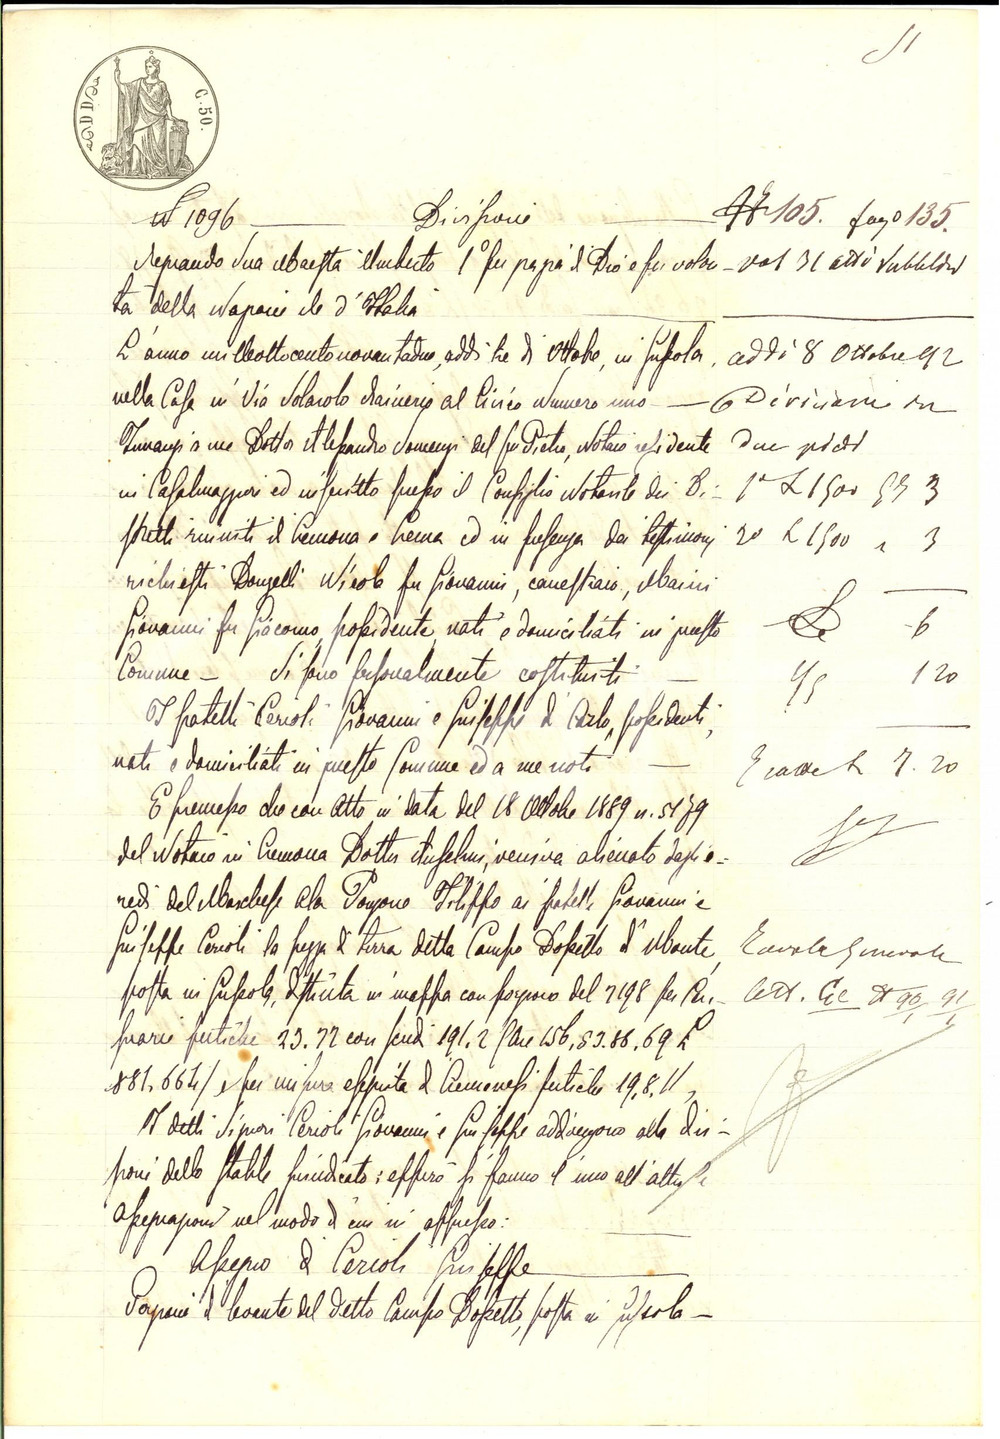 51
DD
C. 50.
N 1096 Divisione N 105. fog 135.
Regnando Sua Maestà Umberto 1° per grazia di Dio e per volon-
tà della Nazione Re d'Italia
vol 31 atti pubblici
L'anno milleottocentonovantadue, addì tre di Ottobre, in Gussola,
addì 8 Ottobre 92
nella Casa in Via al Civico Numero uno
Divisione in
Innanzi a me Dottor Alessandro del fu Pietro, Notaio residente
due
in Casalmaggiore ed inscritto presso il Consiglio Notarile dei Di-
1° L 1500 3
stretti riuniti di Cremona e Crema ed in presenza dei testimoni
2° L 1500 " 3
richiesti Donzelli Nicola fu Giovanni, canestraio, Marini
Giovanni fu Giacomo, possidente, nati e domiciliati in questo
L 6
Comune – Si sono personalmente costituiti
1 20
I fratelli Cerioli Giovanni e Giuseppe di Carlo, possidenti,
nati e domiciliati in questo Comune ed a me noti
L 7.20
E premesso che con Atto in data del 18 Ottobre 1889 n. 5179
del Notaio in Cremona Dottor Anselmi, veniva alienato dagli e-
redi del Marchese Ala Ponzone Filippo ai fratelli Giovanni e
Giuseppe Cerioli la pezza di terra detta Campo Dossetto di Monte,
posta in Gussola, distinta in mappa con porzione del 7198 per Cen-
suarie pertiche 23.72 con scudi 191.2
881.664) e per misura eseguita di Cremonesi pertiche 19,8,11,
I detti Signori Cerioli Giovanni e Giuseppe addivengono alla divi-
sione dello stabile sunindicato; epperò si fanno l'uno all'altro le
assegnazioni nel modo di cui in appresso:
Assegno di Cerioli Giuseppe
Porzione di levante del detto Campo Dossetto, posta in Gussola –